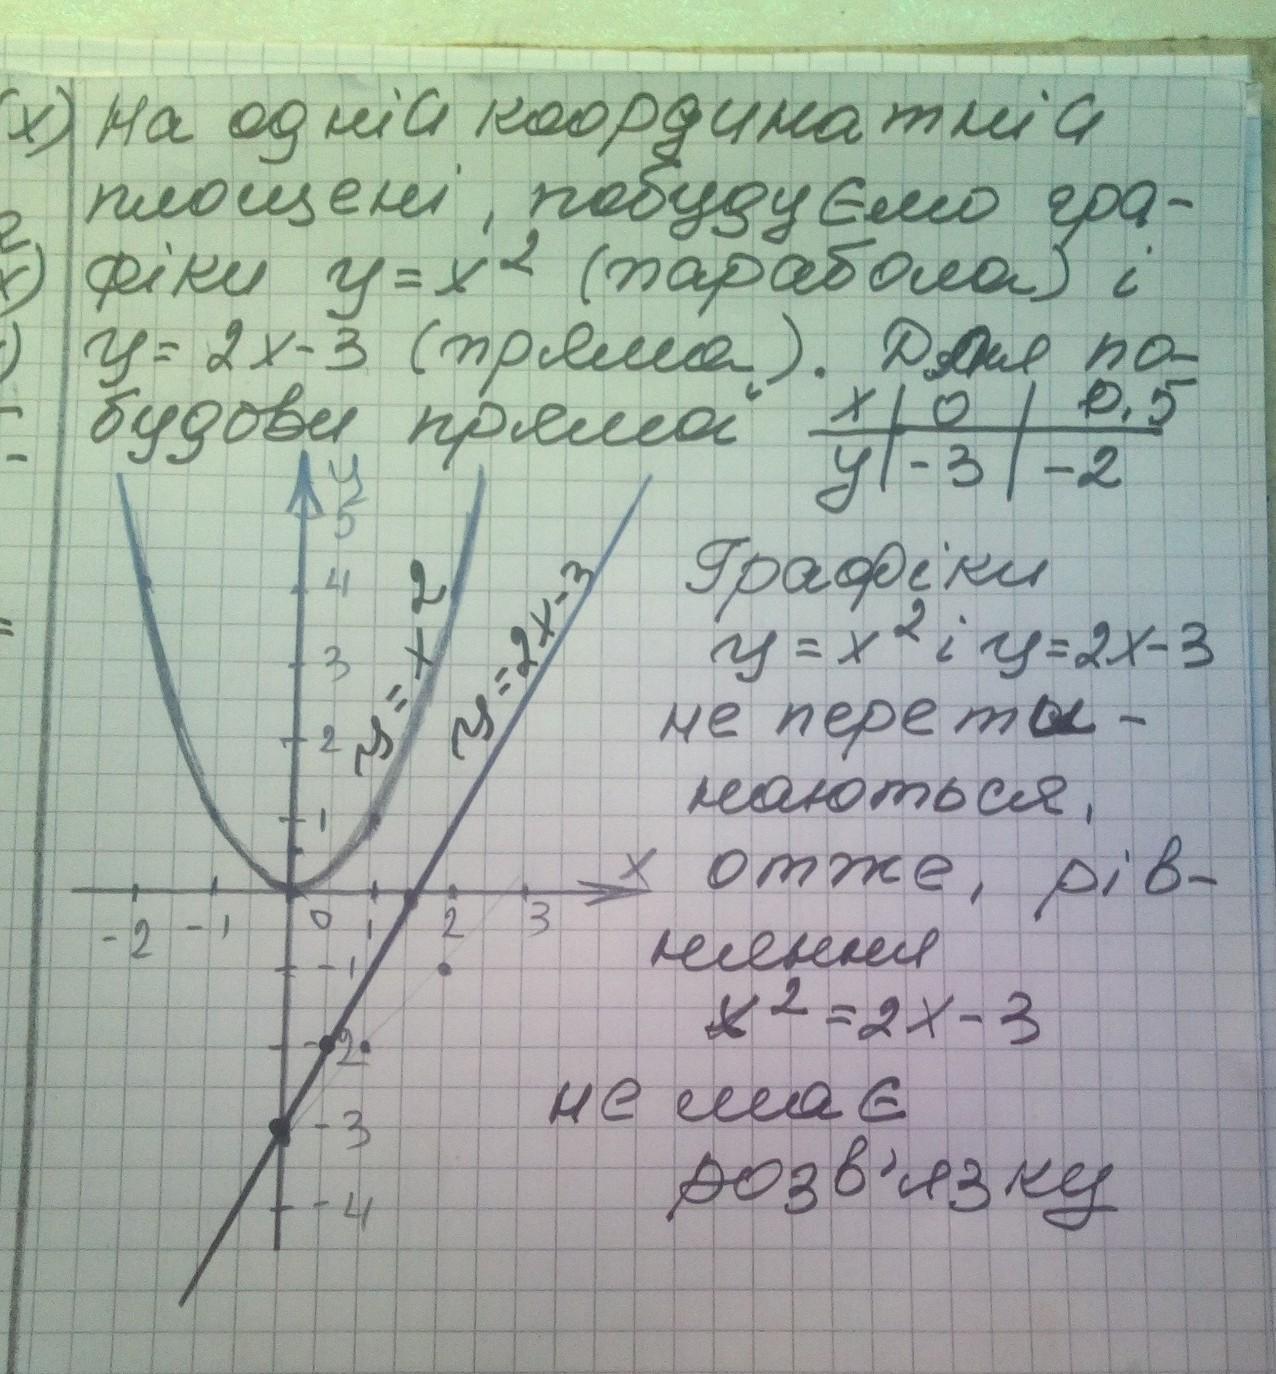 (x) На одній координатній
площені, побудуємо гра-
фіки y=x² (парабола) і
y=2x-3 (пряма). Для по-
будови прямої
x | 0 | 0,5
y | -3 | -2
y
5
4
3
2
1
0
-2 -1 1 2 3 x
-1
-2
-3
-4
y=x2
y=2x-3
Графіки
y=x² і y=2x-3
не перети-
наються,
отже, рів-
няння
x²=2x-3
не має
розв'язку